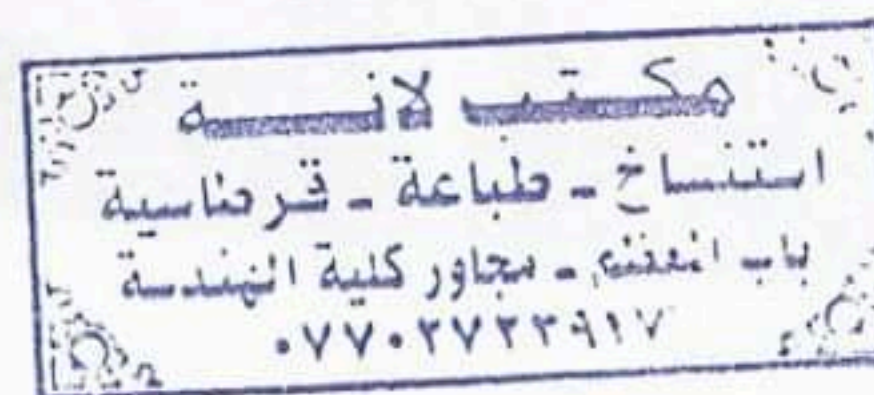 مكتب لانة
استنساخ - طباعة - قرطاسية
باب المعظم - مجاور كلية الهندسة
٠٧٧٠٢٧٢٣٩١٧